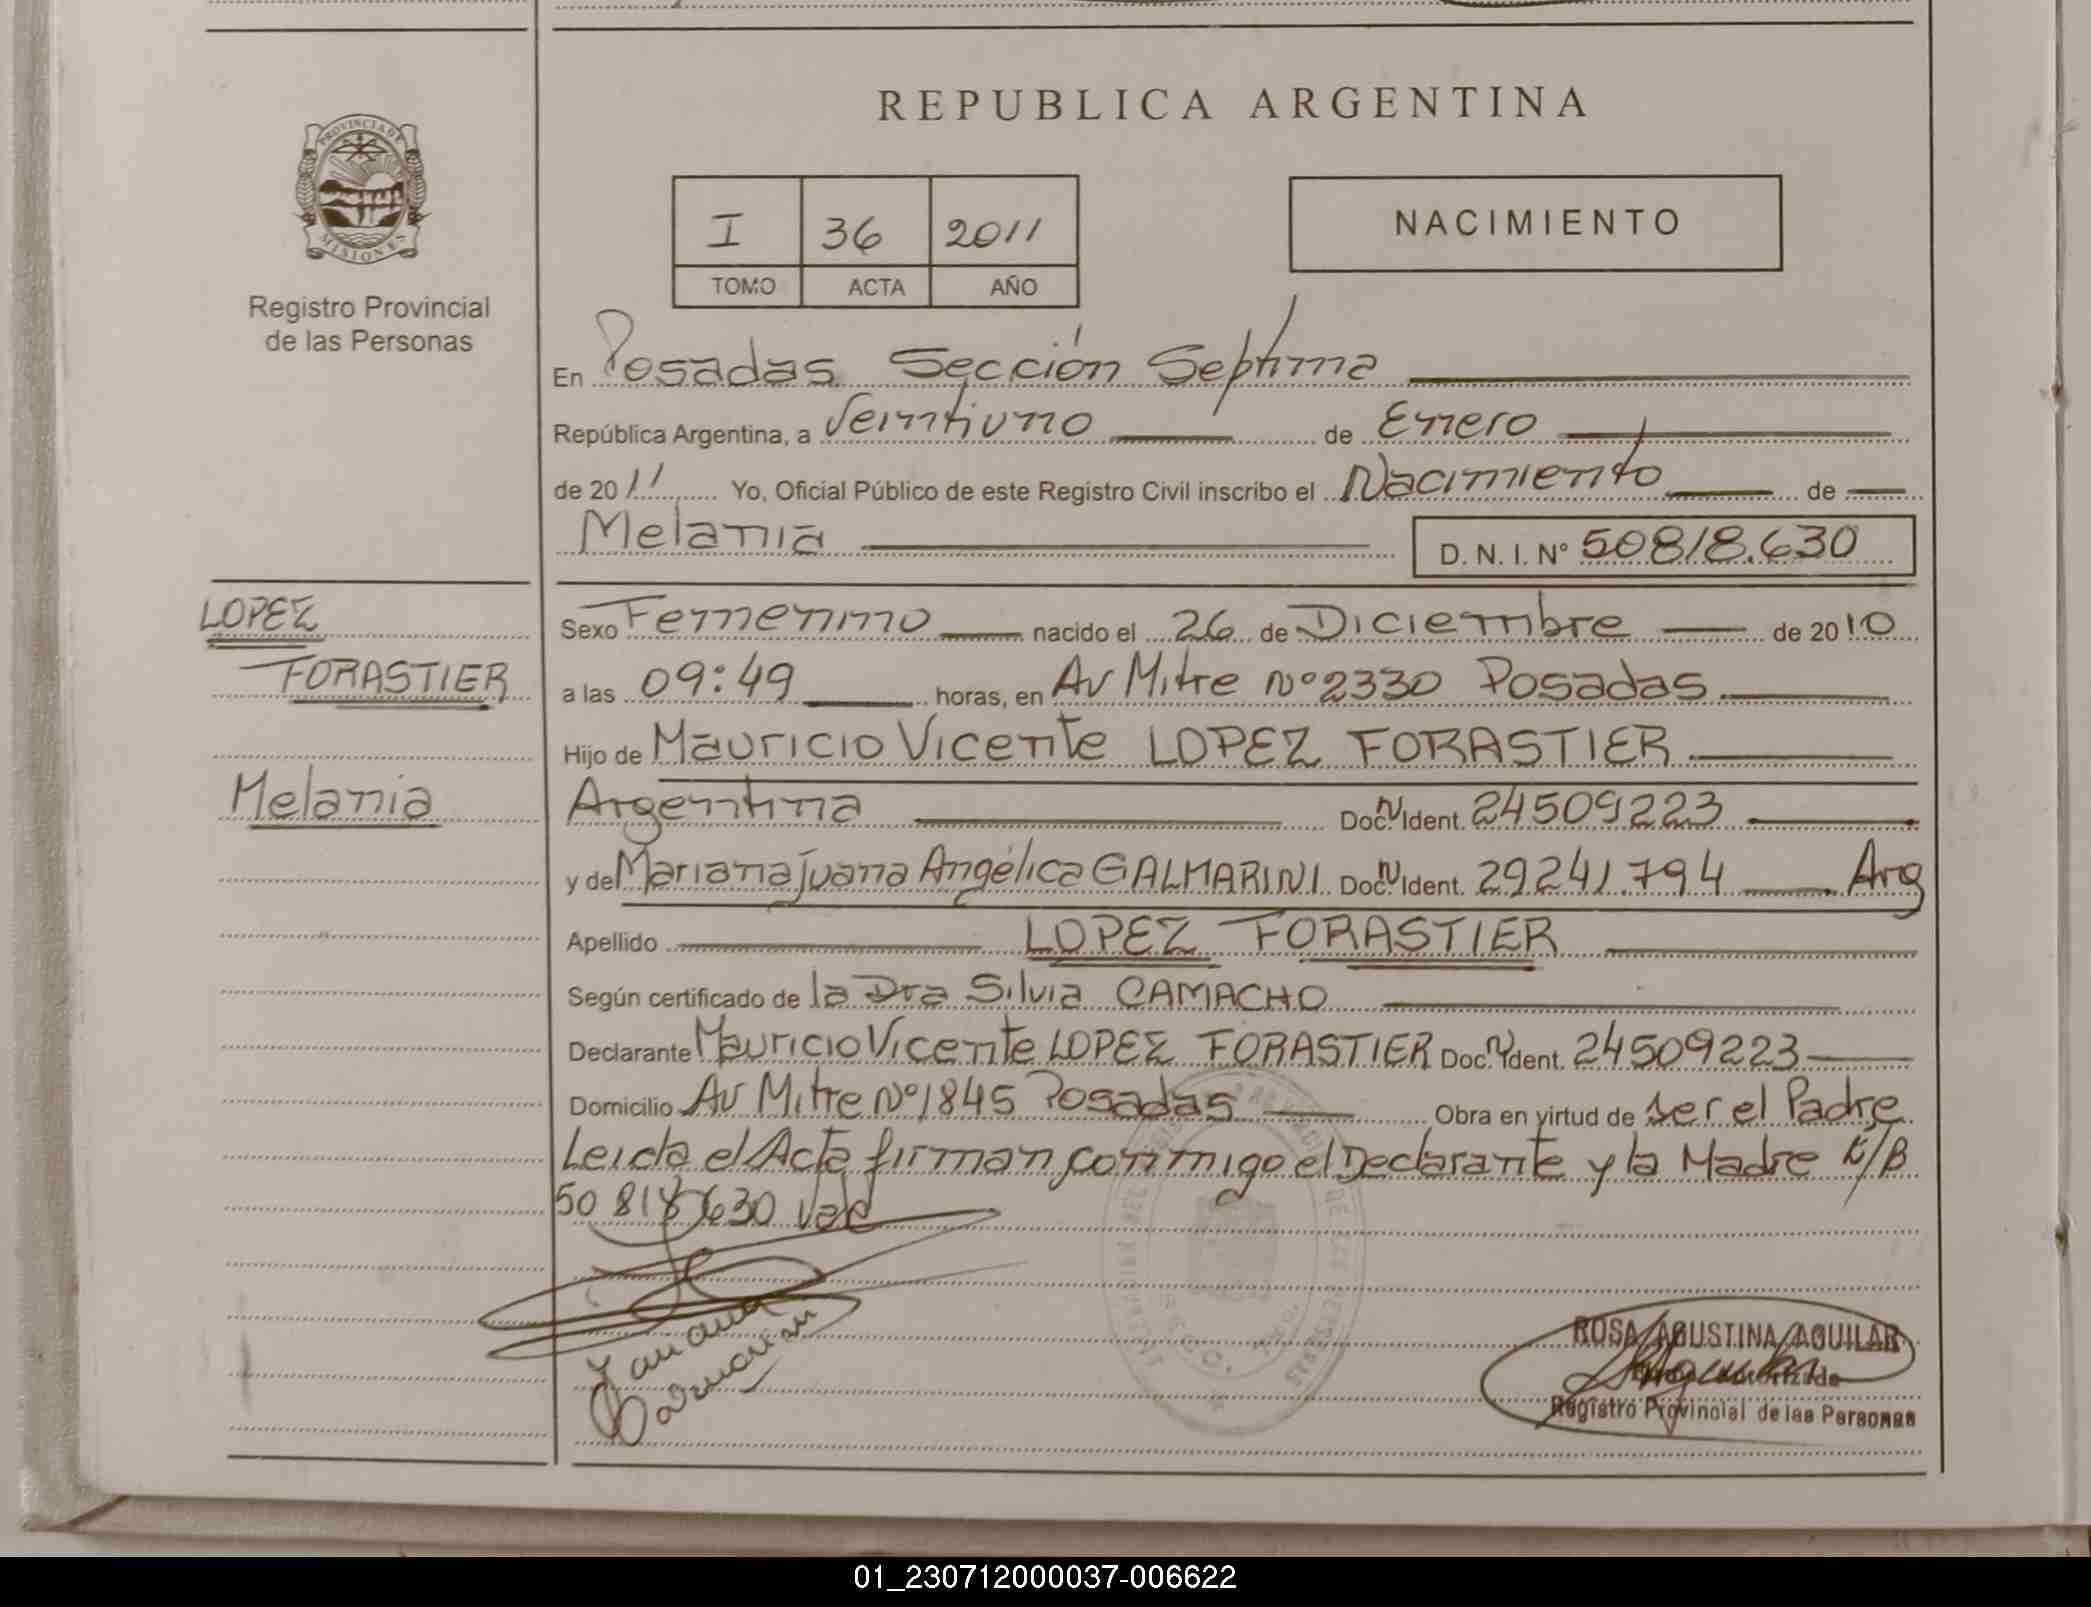 REPUBLICA ARGENTINA
PROVINCIA DE
MISIONES
Registro Provincial
de las Personas
I 36 2011
TOMO ACTA AÑO
NACIMIENTO
En Posadas Sección Septima
República Argentina, a Veintiuno de Enero
de 2011 Yo, Oficial Público de este Registro Civil inscribo el Nacimiento de
Melania D. N. I. Nº 50818.630
LOPEZ
FORASTIER
Melania
Sexo Femenino nacido el 26 de Diciembre de 2010
a las 09:49 horas, en Av Mitre Nº 2330 Posadas
Hijo de Mauricio Vicente LOPEZ FORASTIER
Argentina Doc. N Ident. 24509223
y de Mariana Juana Angélica GALMARINI Doc. N Ident. 29241.794 Arg
Apellido LOPEZ FORASTIER
Según certificado de la Dra Silvia CAMACHO
Declarante Mauricio Vicente LOPEZ FORASTIER Doc. N Ident. 24509223
Domicilio Av Mitre Nº 1845 Posadas Obra en virtud de ser el Padre
Leida el Acta firman conmigo el Declarante y la Madre E/B
50 818 630 Vale
ROSA AGUSTINA AGUILAR
Registro Provincial de las Personas
01_230712000037-006622